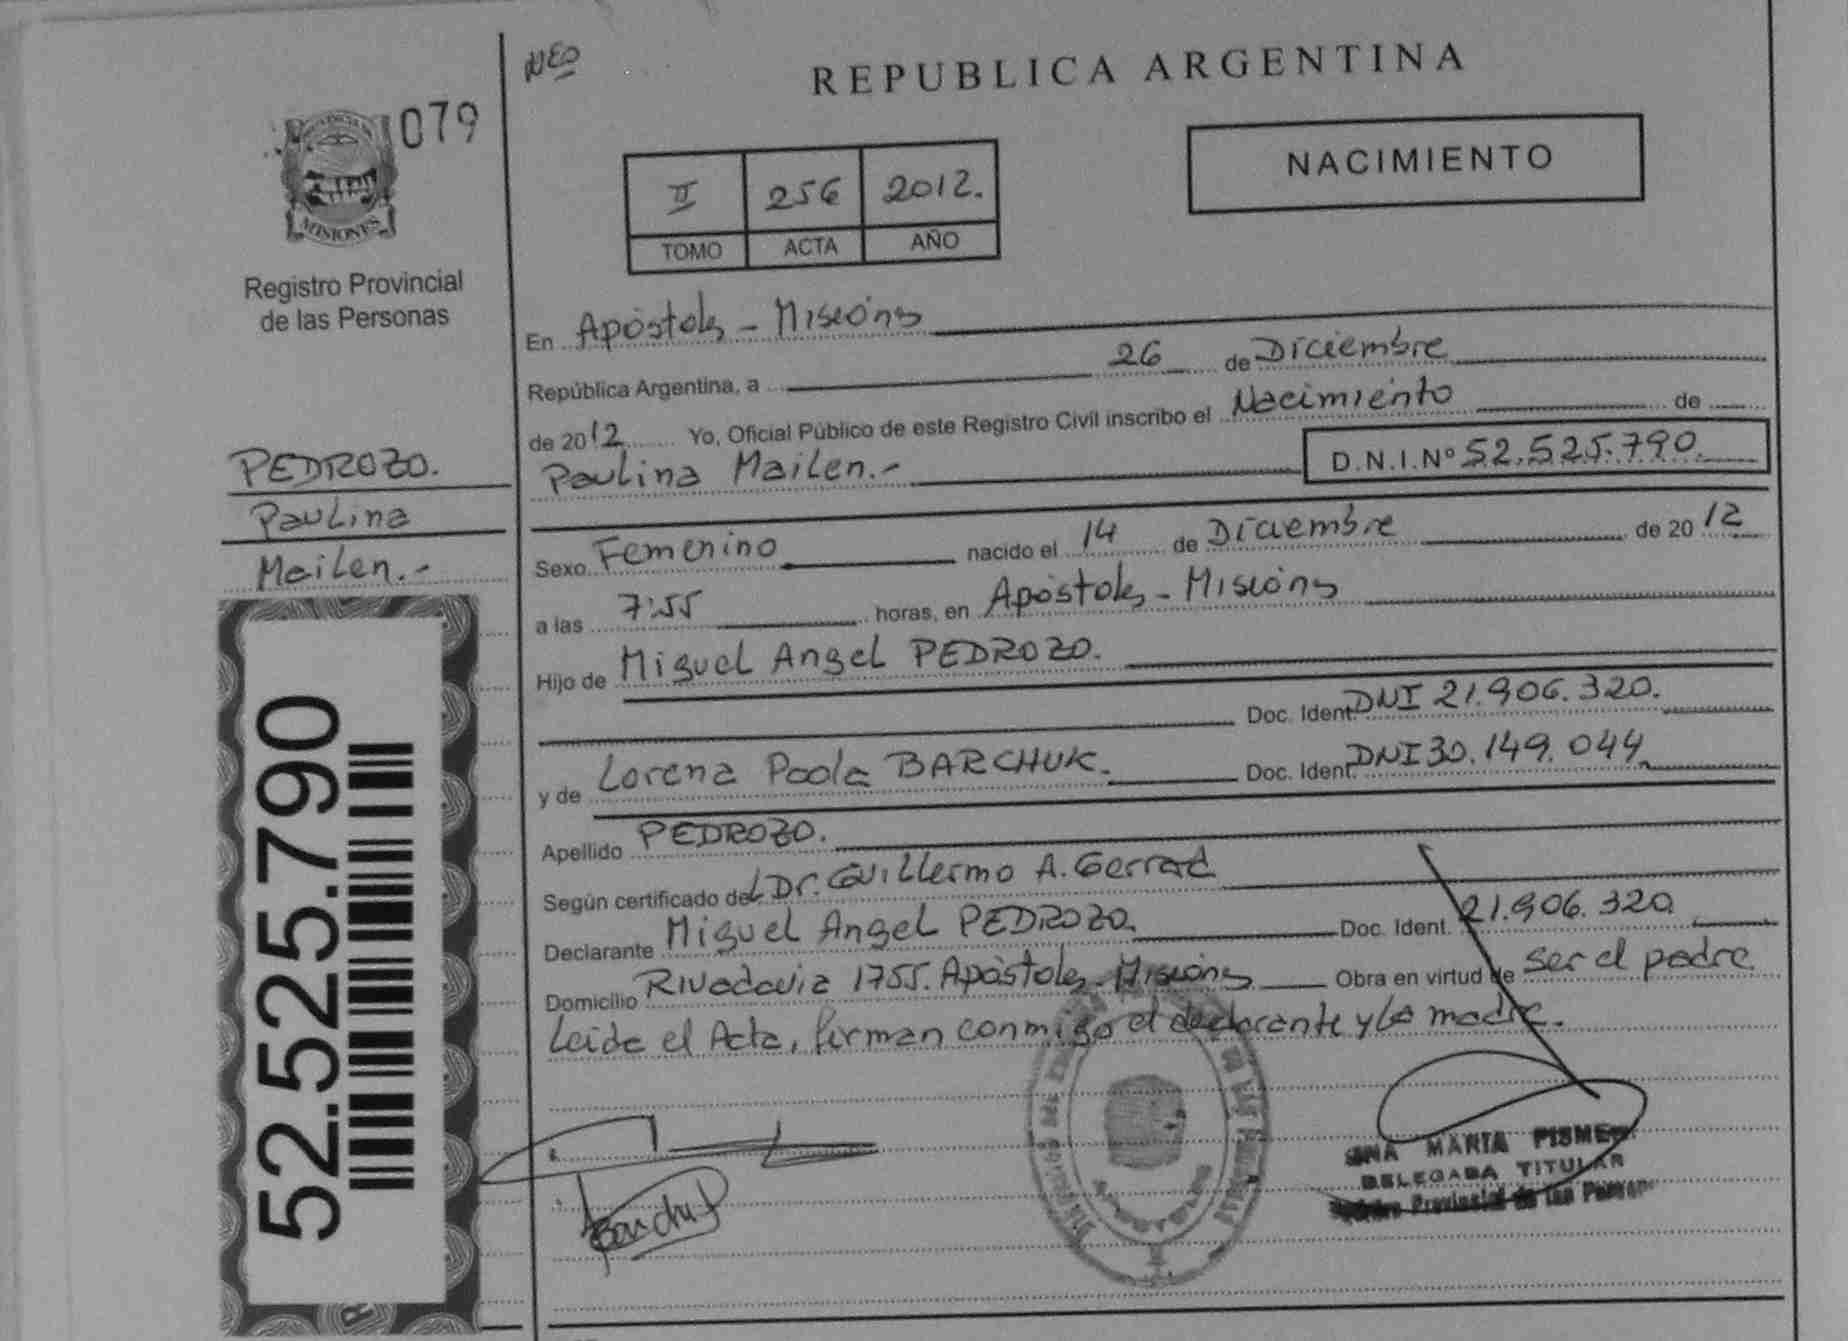 NEO
REPUBLICA ARGENTINA
079
MISIONES
Registro Provincial
de las Personas
NACIMIENTO
II 256 2012.
TOMO ACTA AÑO
En Apóstoles - Misiones
República Argentina, a 26 de Diciembre
de 2012 Yo, Oficial Público de este Registro Civil inscribo el Nacimiento de
Paulina Mailen.- D.N.I.Nº 52.525.790.
PEDROZO.
Paulina
Mailen.-
Sexo Femenino nacido el 14 de Diciembre de 2012
a las 7:55 horas, en Apóstoles - Misiones
Hijo de Miguel Angel PEDROZO.
Doc. Ident. DNI 21.906.320.
y de Lorena Paola BARCHUK. Doc. Ident. DNI 30.149.044.
Apellido PEDROZO.
Según certificado del Dr. Guillermo A.
Declarante Miguel Angel PEDROZO. Doc. Ident. 21.906.320
Domicilio Rivadavia 1755. Apóstoles - Misiones Obra en virtud de ser el padre
Leida el Acta, firman conmigo el declarante y la madre.
52.525.790
Barchuk
MARIA
DELEGADA TITULAR
Provincial de las